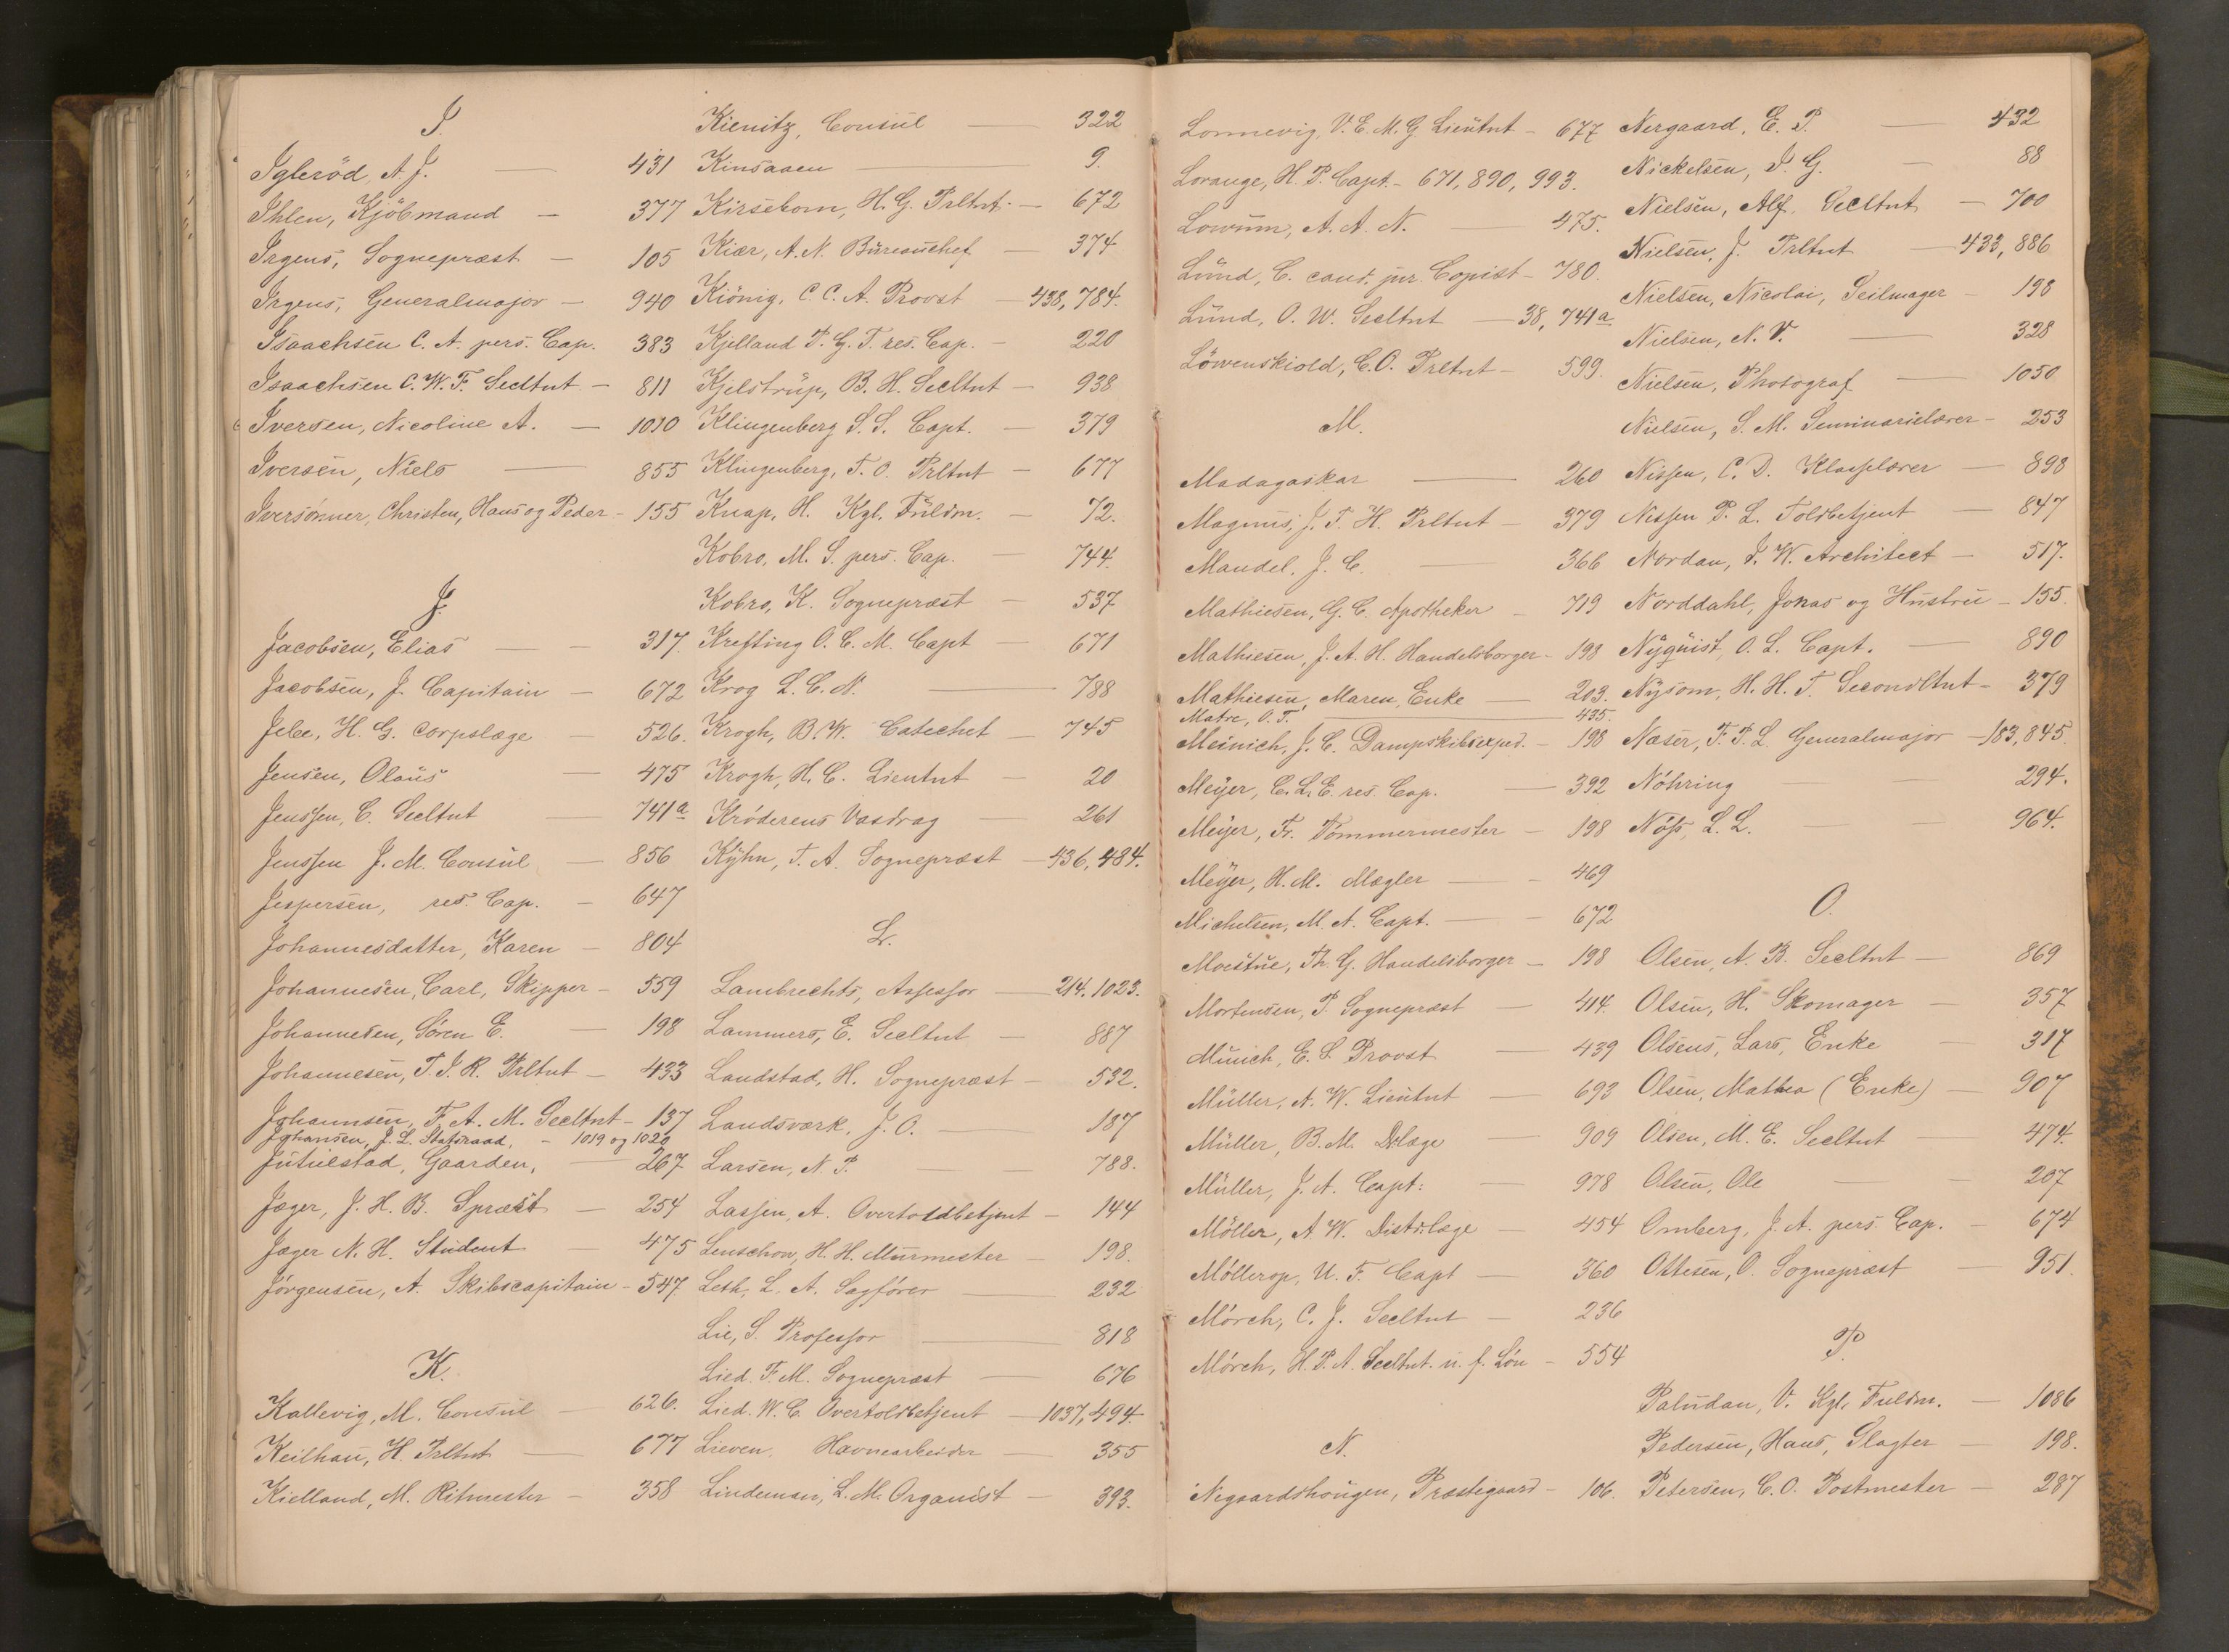 I.
Igleröd, A. J. — 431
Ihlen, Kjöbmand — 377
Irgens, Sognepræst — 105
Irgens, Generalmajor — 940
Isaachsen C. A. pers. Cap. 383
Isaachsen C. W. F. Secltnt — 811
Iversen, Nicoline A. — 1010
Iversen, Niels — 855
Iversönner, Christen, Hans og Peder — 155
J.
Jacobsen, Elias — 317.
Jacobsen, J. Capitain — 672
Jebe, H. G. Corpslæge — 526.
Jensen, Olaus — 475
Jenssen, C. Secltnt — 741a
Jenssen J. M. Consul — 856
Jespersen, res. Cap. — 647
Johannesdatter, Karen — 804
Johannesen, Carl, Skipper — 559
Johannesen, Sören E. — 198
Johannesen, T. J. R. Prltnt — 433
Johannsen, F. A. M. Secltnt — 137
Johansen, J. L. Statsraad, — 1019 og 1020
Jutulstad, Gaarden, — 267.
Jæger, J. H. B. Spræst — 254
Jæger N. H. Student — 475
Jörgensen, A. Skibscapitain — 547
K.
Kallevig, M. Consul — 626.
Keilhau, H. Prltnt — 677
Kielland, M. Ritmester — 358
Kienitz, Consul — 322
Kinsaaen — 9.
Kirsebom, H. G. Prltnt. — 672
Kiær, A. N. Büreauchef — 374
Kiönig, C. C. A. Provst — 438, 784.
Kjelland P. G. T. res. Cap. — 220
Kjelstrup, B. H. Secltnt — 938
Klingenberg S. S. Capt. — 379
Klingenberg, T. O. Prltnt — 677
Knap, H. Kgl. Fuldm. — 72.
Kobro, M. S. pers. Cap. — 744.
Kobro, K. Sognepræst — 537
Krefting O. C. M. Capt — 671
Krog L. C. N. — 788
Krogh, B. W. Catechet — 745
Krogh, H. C. Lieutnt — 20
Kröderens Vasdrag 261
Kyhn, T. A. Sognepræst — 436, 484.
L.
Lambrechts, Assessor — 214. 1023.
Lammers, E. Secltnt — 887
Landstad, H. Sognepræst — 532.
Landsværk, J. O. — 187
Larsen, N. P. — 788.
Lassen, A. Overtoldbetjent — 144
Lenschow, H. H. Murmester — 198.
Leth, L. A. Sagförer — 232
Lie, S. Professor — 818
Lied. F. M. Sognepræst — 676
Lied. W. C. Overtoldbetjent — 1037, 494.
Lieven, Havnearbeider — 355
Lindeman, L. M. Organist — 393.
Lonnevig, V. E. M. G. Lieutnt — 677
Lorange, H. P. Capt. — 671, 890, 993.
Lowum, A. A. N. — 475.
Lund, C. cand. jur. Copist — 780.
Lund, O. W. Secltnt — 38, 741a
Löwenskiold, C. O. Prltnt — 599.
M.
Madagaskar — 260
Magnus, J. T. H. Prltnt — 379
Mandel, J. C. — 366
Mathiesen, G. C. Apotheker — 719
Mathiesen, J. A. H. Handelsborger — 198
Mathiesen, Maren, Enke — 203.
Matre, O. T. — 435.
Meinich, J. C. Dampskibsexped. — 198
Meyer, C. L. E. res. Cap. — 392
Meyer, Fr. Tömmermester — 198
Meyer, H. M. Mægler — 469
Michelsen, M. A. Capt. — 672
Moestue, Th. G. Handelsborger — 198
Mortensen, P. Sognepræst — 414.
Münich, E. S. Provst — 439
Müller, A. W. Lieutnt — 693
Müller, B. M. D.læge — 909
Müller, J. A. Capt: — 978
Möller, A. W. Distr.læge — 454
Möllerop, U. F. Capt — 360
Mörch, C. J. Secltnt — 236
Mörch, H. P. A. Secltnt. u. f. Lön — 554
N.
Negaardshougen, Præstegaard — 106.
Nergaard, E. P. — 432
Nickelsen, P. G. — 88
Nielsen, Alf. Secltnt — 700
Nielsen, J. Prltnt — 433, 886
Nielsen, Nicolai, Seilmager — 198
Nielsen, N. V. — 328
Nielsen, Photograf — 1050
Nielsen, S. M. Seminarielærer — 253
Nissen, C. D. Klasselærer — 898
Nissen P. L. Toldbetjent — 847
Nordan, J. W. Architect — 517.
Norddahl, Jonas og Hustru — 155.
Nyquist, O. L. Capt. — 890
Nysom, H. H. T. Secondltnt — 379
Næser, F. P. L. Generalmajor — 183, 845.
Nöhring — 294.
Nöss, L. L. — 964.
O.
Olsen, A. B. Secltnt — 869
Olsen, H. Skomager — 357
Olsens, Lars, Enke — 317
Olsen, Mathea (Enke) — 907
Olsen, M. E. Secltnt — 474.
Olsen, Ole — 207
Omberg, J. A. pers. Cap. — 674
Ottesen, O. Sognepræst — 951.
P.
Paludan, V. Kgl. Fuldm. — 1086
Pedersen, Hans, Slagter — 198.
Petersen, C. O. Postmester — 287